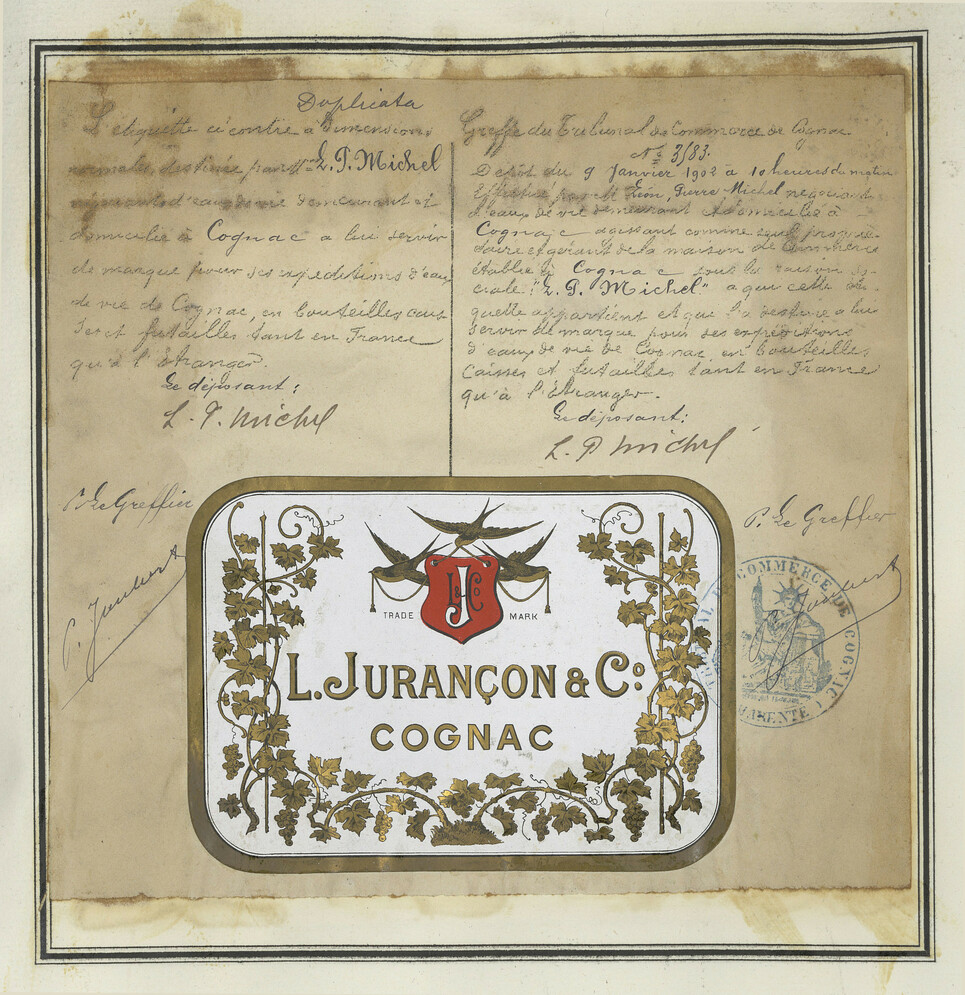 Duplicata
L'étiquette ci contre à dimensions
normales, destinée par Mr L. P. Michel
négociant d'eaux de vie demeurant et
domicilié à Cognac a lui servir
de marque pour ses expéditions d'eaux
de vie de Cognac, en bouteilles, cais
ses et futailles tant en France
qu'à l'étranger.
Le déposant :
L. P. Michel
P. Le Greffier
Greffe du Tribunal de Commerce de Cognac
No 3183.
Dépôt du 9 Janvier 1902 à 10 heures du matin
Effectué par Mr Léon, Pierre Michel négociant
d'eaux de vie demeurant et domicilié à
Cognac agissant comme seul proprié-
taire et gérant de la maison de Commerce
établie à Cognac sous la raison so-
ciale: "L. P. Michel" a qui cette éti-
quette appartient et que l'a destine a lui
servir de marque pour ses expéditions
d'eaux de vie de Cognac, en bouteilles,
Caisses et futailles tant en France
qu'à l'étranger.
Le déposant:
L. P Michel
P. Le Greffier
TRADE MARK
J & Co
L. JURANÇON & Co:
COGNAC
COMMERCE DE COGNAC
CHARENTE